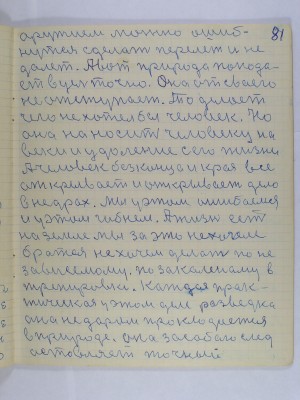 81
оружием можно ошиб-
нутся сделат перелет и не
долет. А вот природа попода-
ет в цел точно. Она от своего
не отступает. То делает
чего не хотел бы человек. Но
она наносит человеку на
веки и удоление с его жизни
А человек без конца и края все
открывает и открывает дело
в недрах. Мы узтом ошибаемся
и узтом гибнем. А жизн ест
на земле мы за это не хочем
братся не хочем делат по не
зависемому. по закаленаму в
тренировки. Каждая прак-
тическая узтом деле разведка
она недаром проводится
в природе. она за собою след
оставляет точный